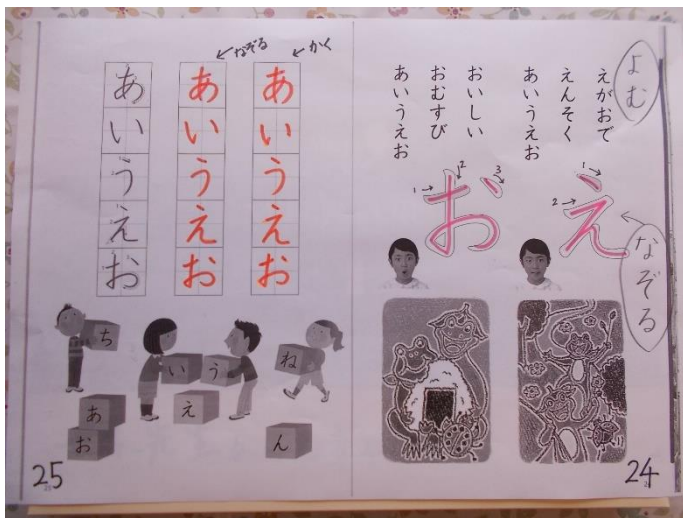 よむ
えがおで
えんそく
あいうえお
おいしい
おむすび
あいうえお
1
2
え
なぞる
1
2
3
お
24
かく
あいうえお
なぞる
あいうえお
あいうえお
ち
い
う
ね
あ
え
お
ん
25